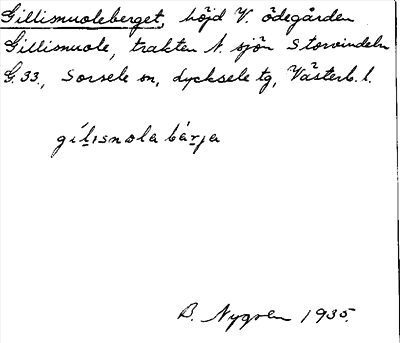 Gillismuoleberget, höjd V. ödegården
Gillismuole, trakten N. sjön Storvindeln
G.33., Sorsele sn, Lycksele tg, Västerb. l.
gílisnola bárja
B. Nygren 1935.